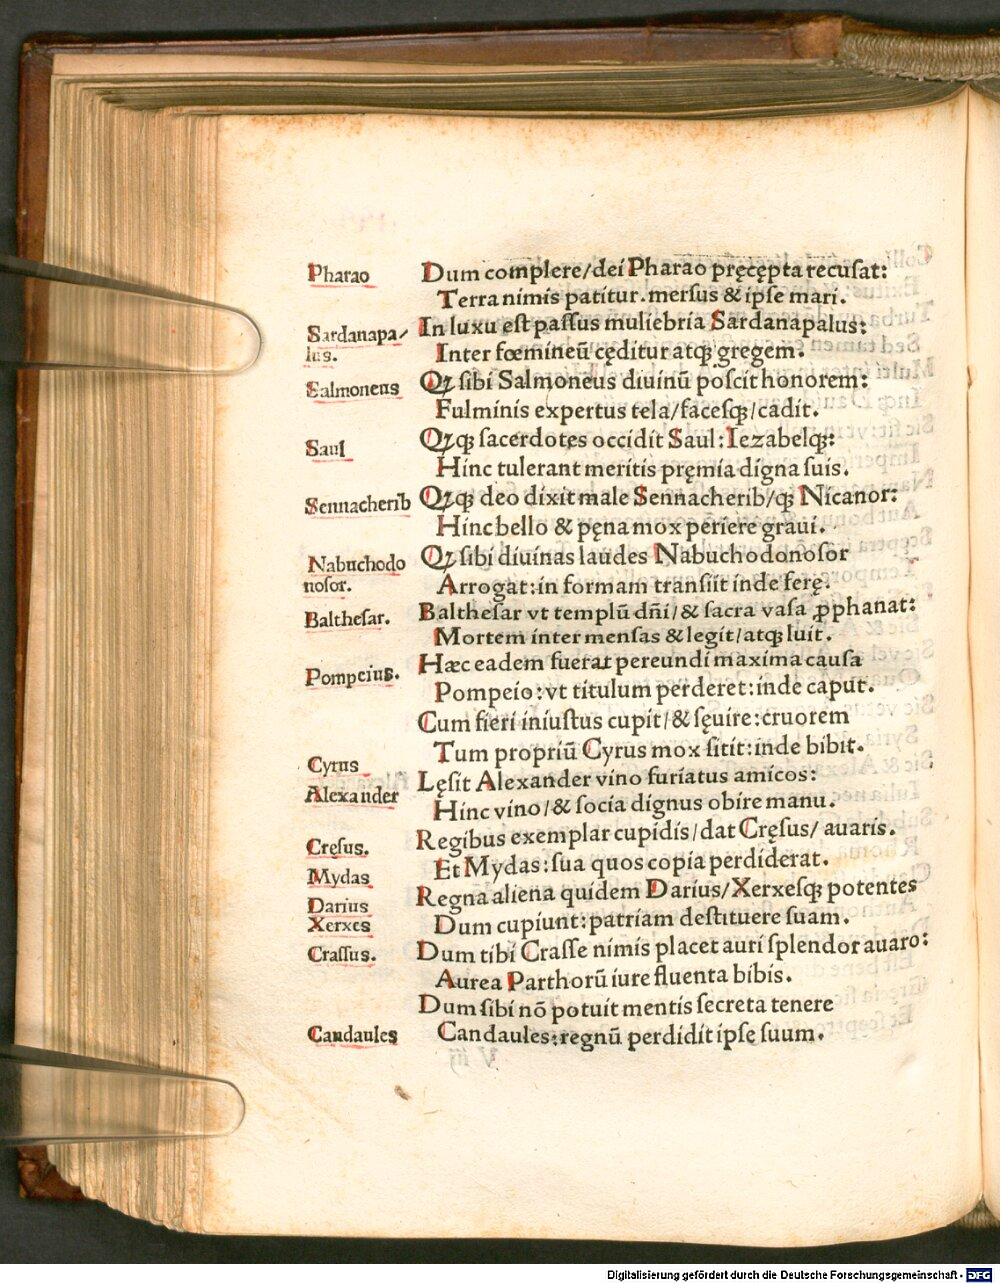 Pharao Dum complere/dei Pharao pręcępta recuſat:
Terra nimis patitur. merſus & ipſe mari.
Sardanapa/ In luxu eſt paſſus muliebria Sardanapalus:
lus. Inter fœmineū cęditur atqꝫ gregem.
Salmoneus Qꝫ ſibi Salmoneus diuinū poſcit honorem:
Fulminis expertus tela/faceſqꝫ/cadit.
Saul Qꝫqꝫ ſacerdotes occidit Saul: Iezabelqꝫ:
Hinc tulerant meritis pręmia digna ſuis.
Sennacherib Qꝫqꝫ deo dixit male Sennacherib/qꝫ Nicanor:
Hinc bello & pęna mox periere graui.
Nabuchodo Qꝫ ſibi diuinas laudes Nabuchodonoſor
noſor. Arrogat: in formam tranſiit inde ferę.
Baltheſar. Baltheſar vt templū dn̄i/& ſacra vaſa ꝓphanat:
Mortem inter menſas & legit/atqꝫ luit.
Pompeius. Hæc eadem fuerat pereundi maxima cauſa
Pompeio: vt titulum perderet: inde caput.
Cum fieri iniuſtus cupit/& ſęuire: cruorem
Cyrus Tum propriū Cyrus mox ſitit: inde bibit.
Alexander Lęſit Alexander vino furiatus amicos:
Hinc vino/& ſocia dignus obire manu.
Cręſus. Regibus exemplar cupidis/dat Cręſus/ auaris.
Mydas Et Mydas: ſua quos copia perdiderat.
Darius Regna aliena quidem Darius/Xerxeſqꝫ potentes
Xerxes Dum cupiunt: patriam deſtituere ſuam.
Craſſus. Dum tibi Craſſe nimis placet auri ſplendor auaro:
Aurea Parthorū iure fluenta bibis.
Dum ſibi nō potuit mentis ſecreta tenere
Candaules Candaules: regnū perdidit ipſe ſuum.
Digitalisierung gefördert durch die Deutsche Forschungsgemeinschaft - DFG